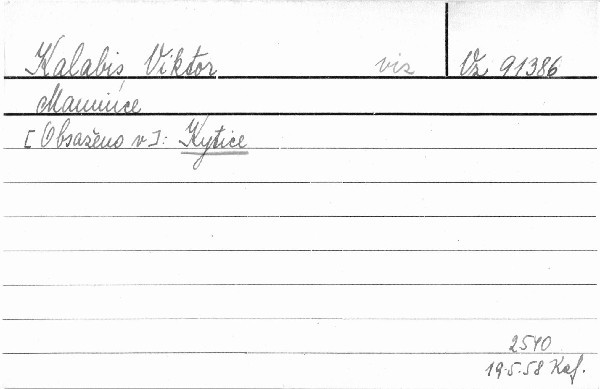 Kalabis Viktor viz Vz 91386
Maminice
[Obsaženo v]: Kytice
2540
19.5.58 Kaf.